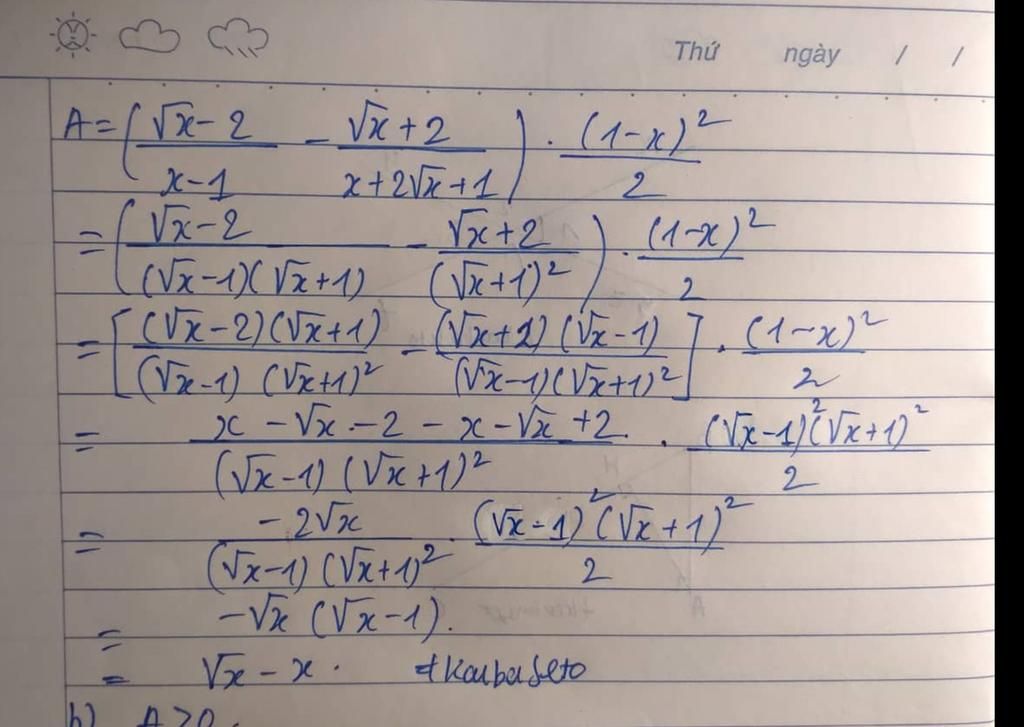 Thứ ngày / /
A = ( (√x - 2)/(x - 1) - (√x + 2)/(x + 2√x + 1) ) . (1 - x)²/2
= ( (√x - 2)/((√x - 1)(√x + 1)) - (√x + 2)/(√x + 1)² ) . (1 - x)²/2
= [ (√x - 2)(√x + 1)/((√x - 1)(√x + 1)²) - (√x + 2)(√x - 1)/((√x - 1)(√x + 1)²) ] . (1 - x)²/2
= (x - √x - 2 - x - √x + 2)/((√x - 1)(√x + 1)²) . (√x - 1)²(√x + 1)²/2
= -2√x/((√x - 1)(√x + 1)²) . (√x - 1)²(√x + 1)²/2
= -√x (√x - 1).
= √x - x .
b) A > 0